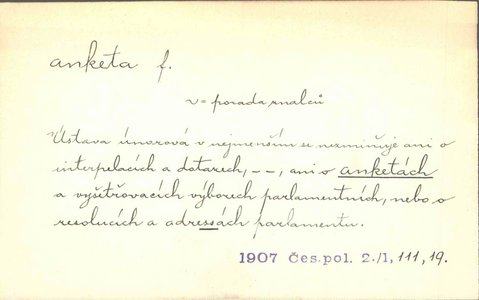 anketa f.
v= porada znalců
Ústava únorová v nejmenším se nezmiňuje ani o
interpelacích a dotazech, – –, ani o anketách
a vyšetřovacích výborech parlamentních, nebo o
resolucích a adressách parlamentu.
1907 Čes. pol. 2./1, 111, 19.